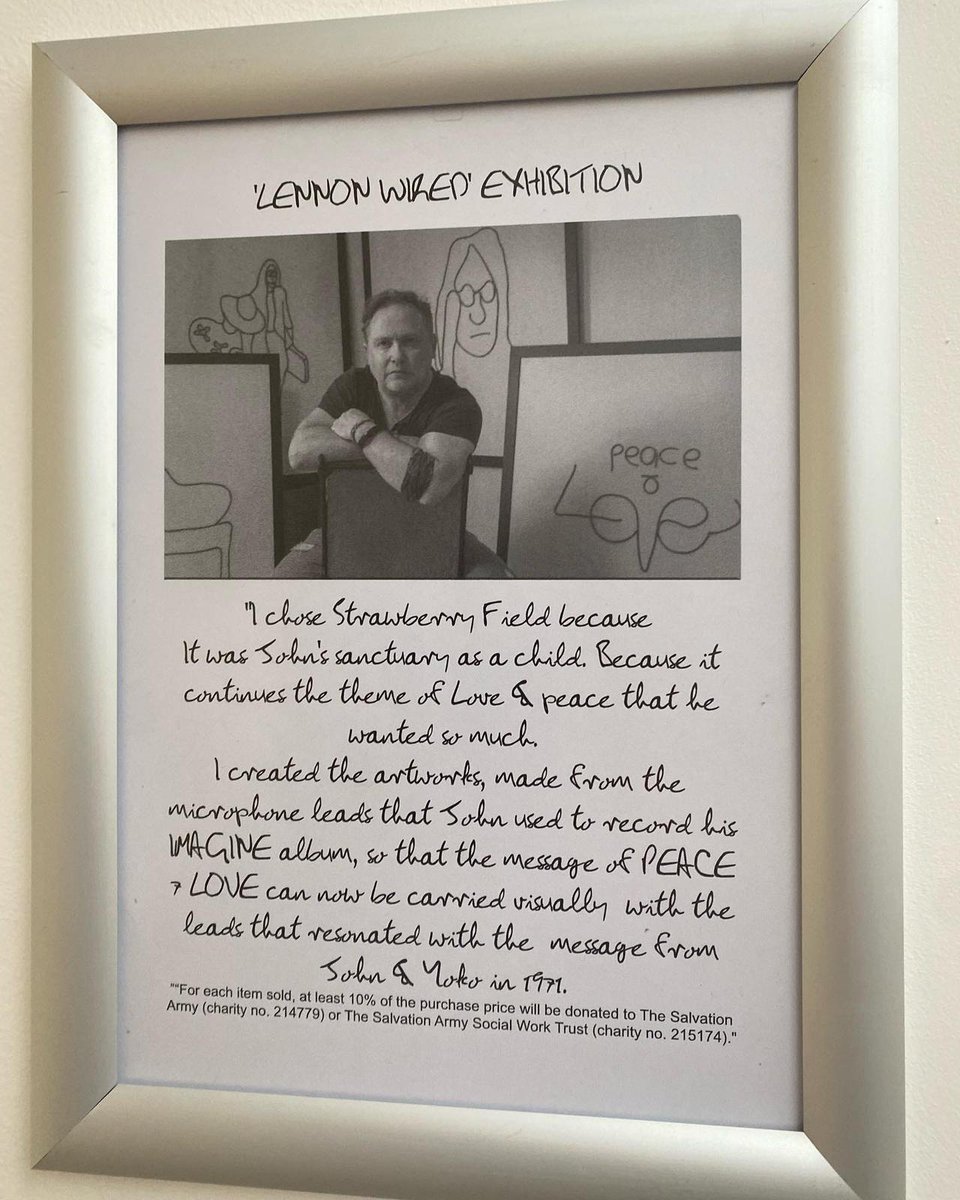 'LENNON WIRED' EXHIBITION
peace
Love
"I chose Strawberry Field because
It was John's sanctuary as a child. Because it
continues the theme of Love & peace that he
wanted so much.
I created the artworks, made from the
microphone leads that John used to record his
IMAGINE album, so that the message of PEACE
& LOVE can now be carried visually with the
leads that resonated with the message from
John & Yoko in 1971.
""For each item sold, at least 10% of the purchase price will be donated to The Salvation
Army (charity no. 214779) or The Salvation Army Social Work Trust (charity no. 215174)."